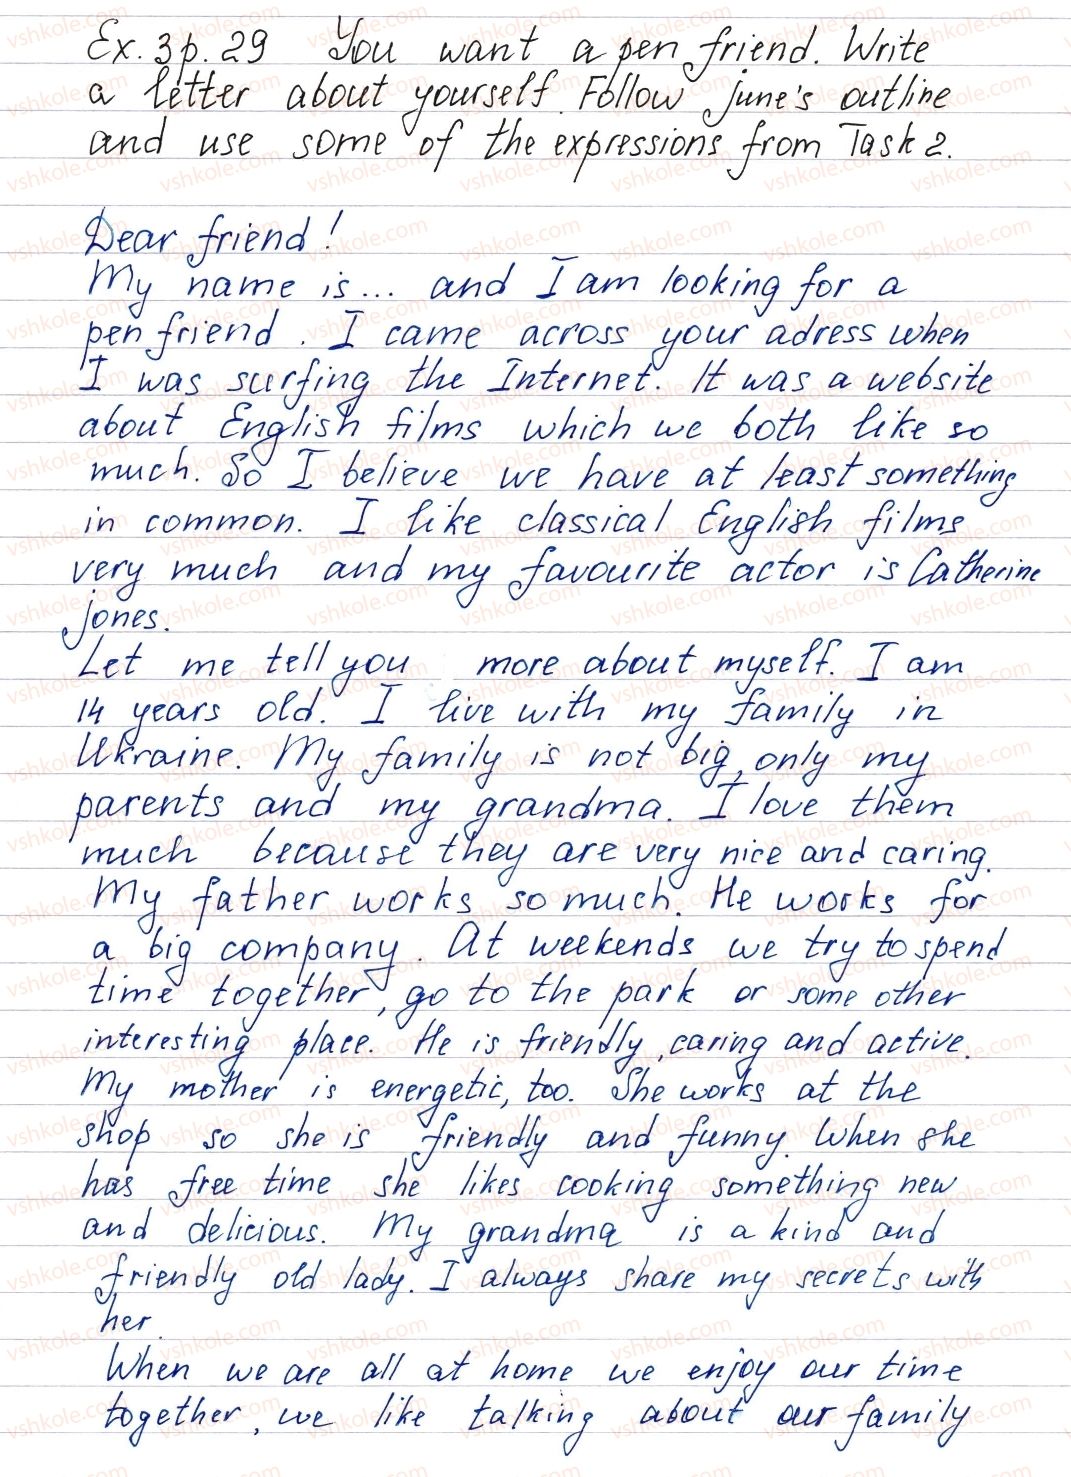 Ex. 3 p. 29 You want a pen friend. Write
a letter about yourself. Follow June's outline
and use some of the expressions from Task 2.
Dear friend!
My name is... and I am looking for a
pen friend. I came across your adress when
I was surfing the Internet. It was a website
about English films which we both like so
much. So I believe we have at least something
in common. I like classical English films
very much and my favourite actor is Catherine
Jones.
Let me tell you more about myself. I am
14 years old. I live with my family in
Ukraine. My family is not big, only my
parents and my grandma. I love them
much because they are very nice and caring.
My father works so much. He works for
a big company. At weekends we try to spend
time together, go to the park or some other
interesting place. He is friendly, caring and active.
My mother is energetic, too. She works at the
shop so she is friendly and funny. When she
has free time she likes cooking something new
and delicious. My grandma is a kind and
friendly old lady. I always share my secrets with
her.
When we are all at home we enjoy our time
together, we like talking about our family